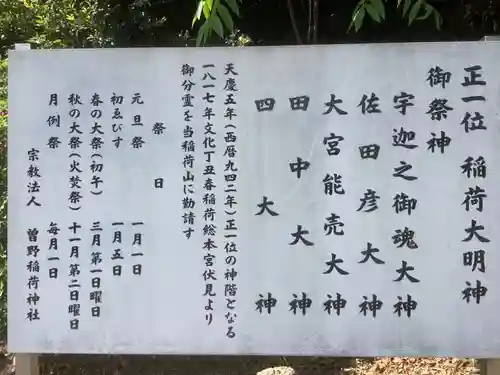 正一位 稲荷大明神
御祭神
宇迦之御魂大神
佐田彦大神
大宮能売大神
田中大神
四大神
天慶五年（西暦九四二年）正一位の神階となる
一八一七年文化丁丑春稲荷総本宮伏見より
御分霊を当稲荷山に勧請す
祭日
元旦祭 一月一日
初ゑびす 一月五日
春の大祭（初午） 三月第一日曜日
秋の大祭（火焚祭） 十一月第二日曜日
月例祭 毎月一日
宗教法人 曽野稲荷神社